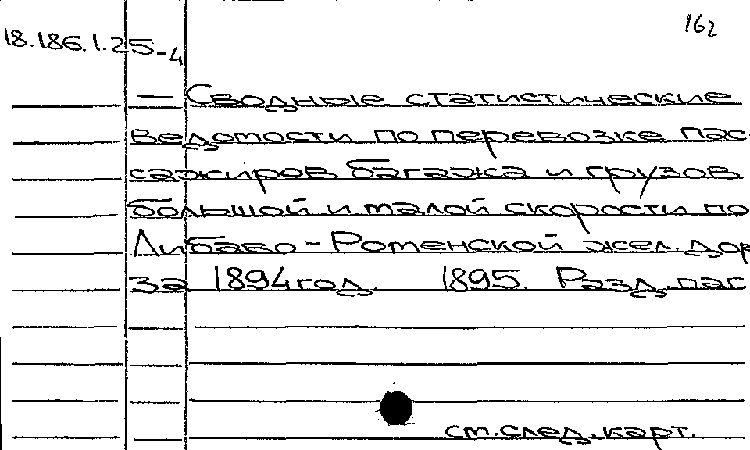 162
18.186.1.25-4
— Сводные статистические
ведомости по перевозке пас-
сажиров багажа и грузов
большой и малой скорости по
Либаво-Роменской жел.дор
за 1894 год. 1895. Разд.пас
см.след.карт.